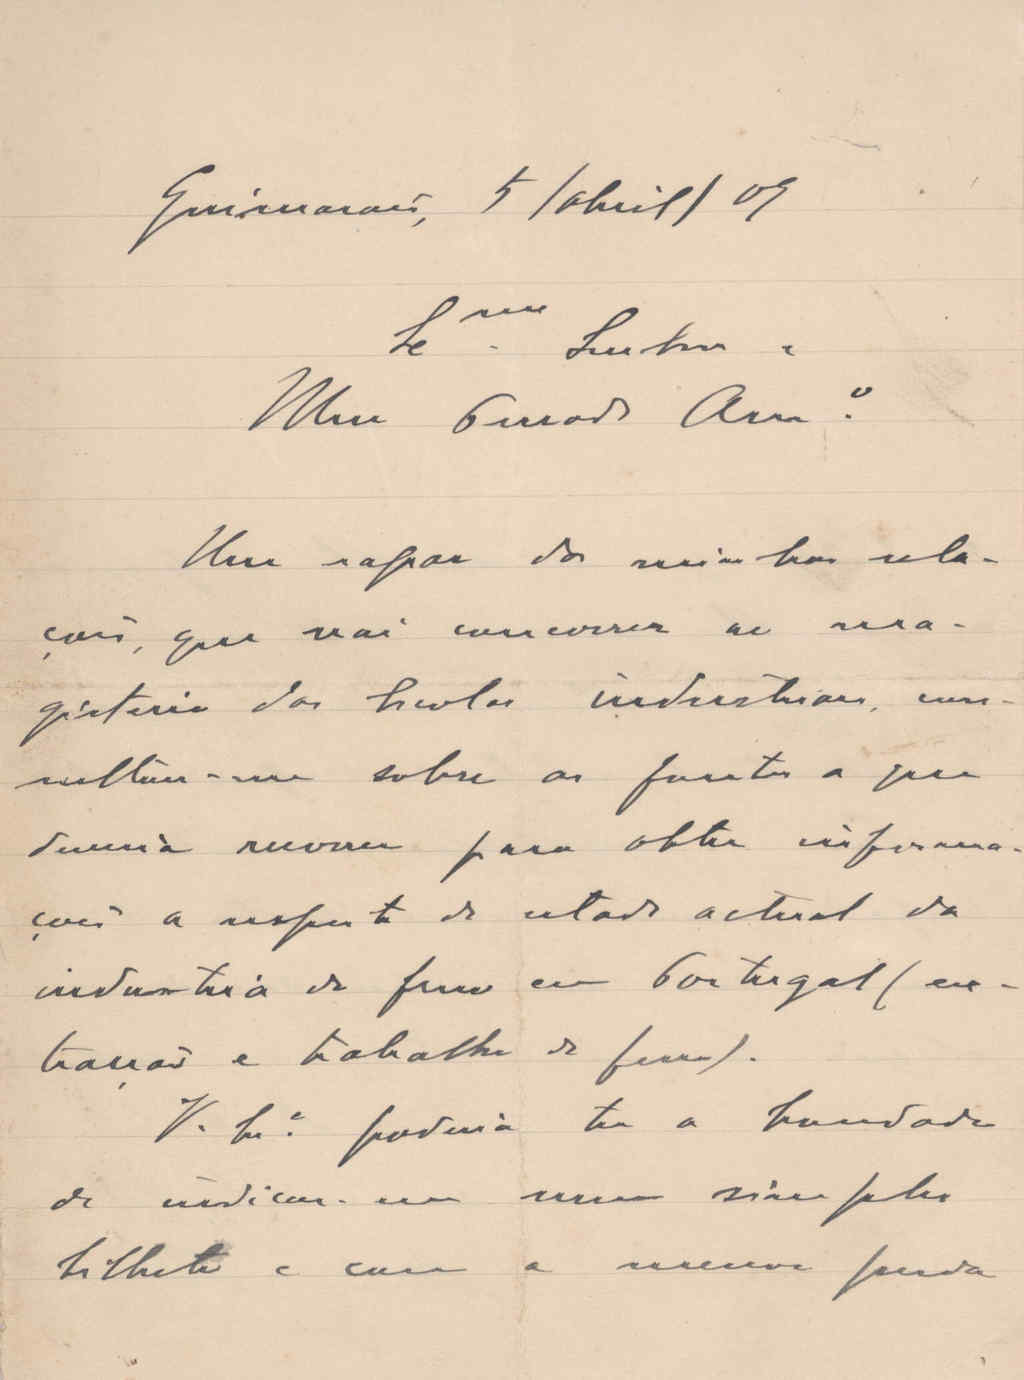 Guimarães, 5/abril/09
Ex.mo Senhor e
Meu Prezado Am.o
Um rapaz das minhas rela-
ções, que vai concorrer ao ma-
gisterio das Escolas industriais, con-
sultou-me sobre as fontes a que
deveria recorrer para obter informa-
ções a respeito do estado actual da
industria do ferro em Portugal (ex-
tracção e trabalho do ferro).
V. Ex.a poderia ter a bondade
de indicar-me num simples
bilhete e com a menor perda